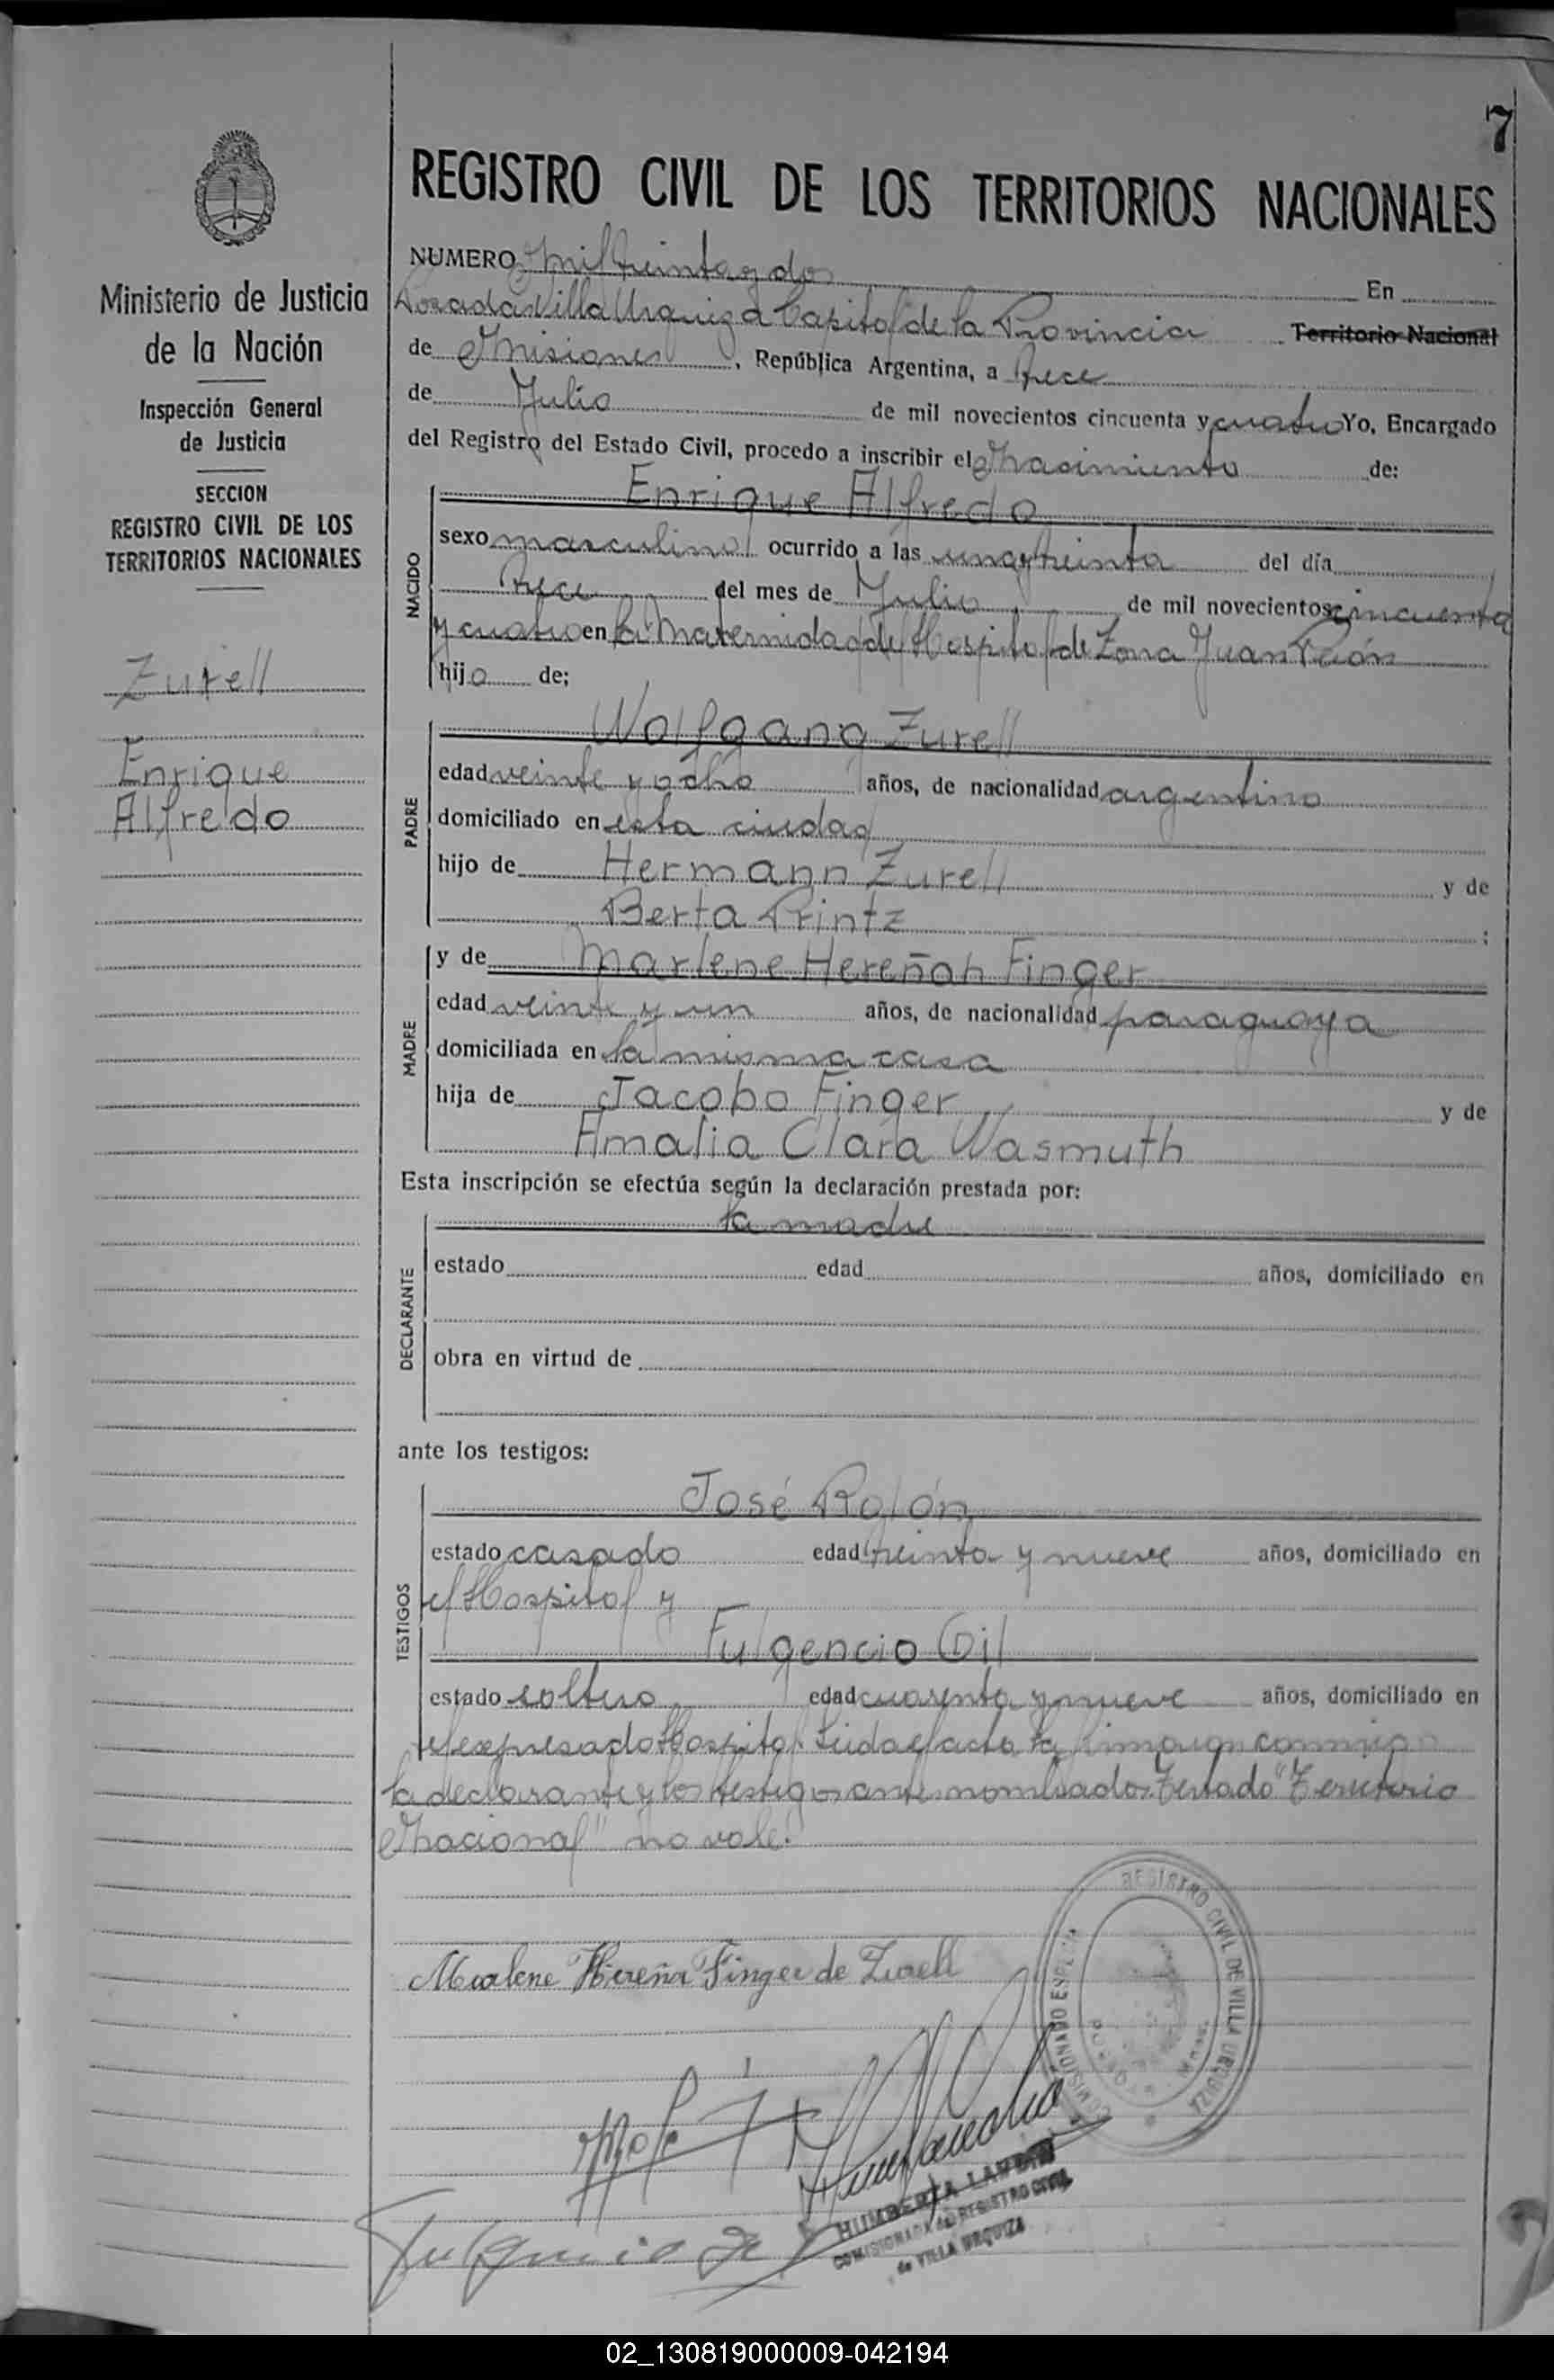 7
REGISTRO CIVIL DE LOS TERRITORIOS NACIONALES
Ministerio de Justicia
de la Nación
Inspección General
de Justicia
SECCION
REGISTRO CIVIL DE LOS
TERRITORIOS NACIONALES
Zurell
Enrique
Alfredo
NUMERO mil treinta y dos En
Posadas Villa Urquiza Capital de la Provincia Territorio Nacional
de Misiones, República Argentina, a trece
de Julio de mil novecientos cincuenta y cuatro Yo, Encargado
del Registro del Estado Civil, procedo a inscribir el Nacimiento de:
NACIDO
Enrique Alfredo
sexo masculino ocurrido a las una y treinta del día
trece del mes de Julio de mil novecientos cincuenta
y cuatro en la Maternidad del Hospital de Zona Juan Perón
hijo de;
PADRE
Wolfgang Zurell
edad veinte y ocho años, de nacionalidad argentino
domiciliado en esta ciudad
hijo de Hermann Zurell y de
Berta Printz ;
MADRE
y de Marlene Hereñah Finger
edad veinte y un años, de nacionalidad paraguaya
domiciliada en la misma casa
hija de Jacobo Finger y de
Amalia Clara Wasmuth
Esta inscripción se efectúa según la declaración prestada por:
DECLARANTE
la madre
estado edad años, domiciliado en
obra en virtud de
ante los testigos:
TESTIGOS
José Rolón
estado casado edad treinta y nueve años, domiciliado en
el Hospital y
Fulgencio Gil
estado soltero edad cuarenta y nueve años, domiciliado en
el expresado Hospital. Leida el acta la firmaron conmigo
la declarante y los testigos antes nombrados. Testado "Territorio
Nacional" no vale.
Marlene Hereña Finger de Zurell
REGISTRO CIVIL DE VILLA URQUIZA
COMISIONADO
Fulgencio Gil
HUMBERTA
COMISIONADA del REGISTRO CIVIL
de VILLA URQUIZA
02_130819000009-042194